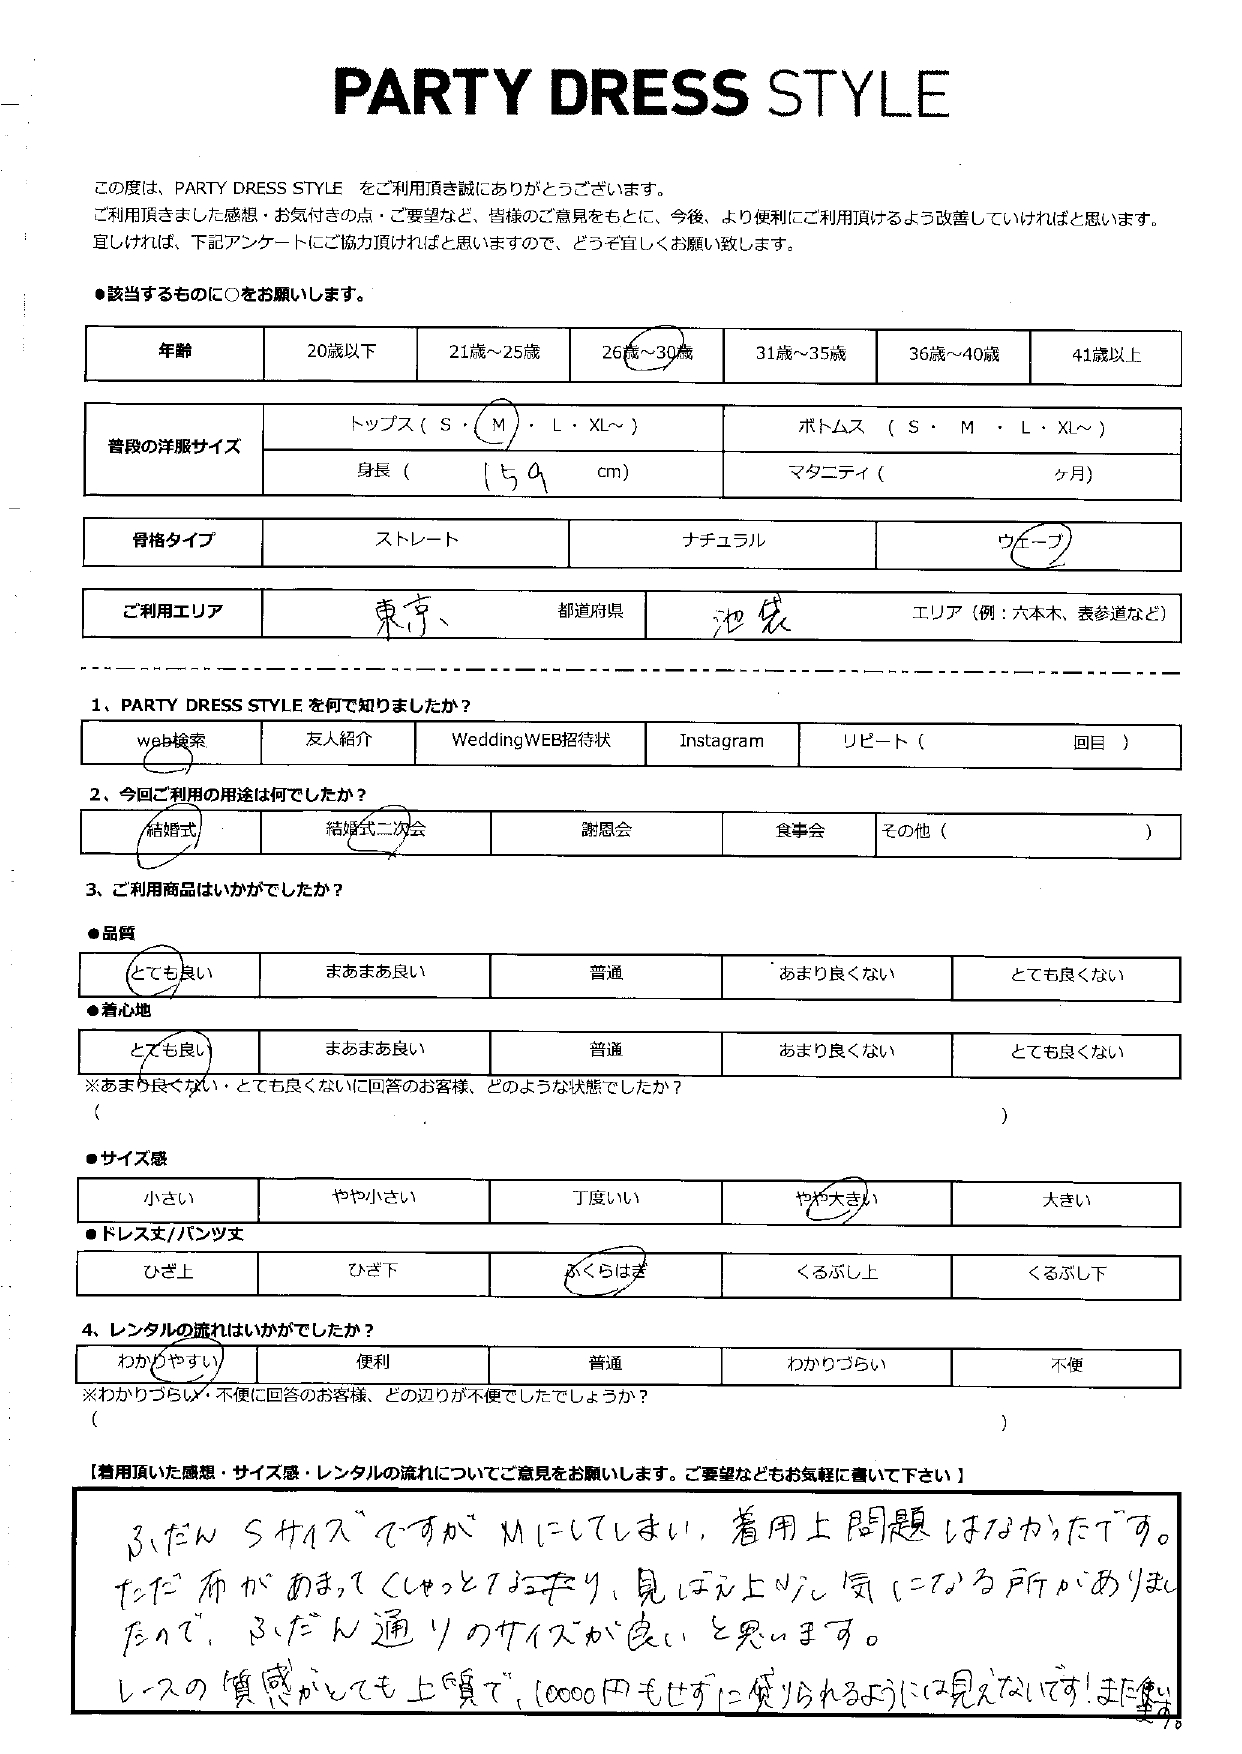 PARTY DRESS STYLE
この度は、PARTY DRESS STYLE をご利用頂き誠にありがとうございます。
ご利用頂きました感想・お気付きの点・ご要望など、皆様のご意見をもとに、今後、より便利にご利用頂けるよう改善していければと思います。
宜しければ、下記アンケートにご協力頂ければと思いますので、どうぞ宜しくお願い致します。
●該当するものに○をお願いします。
年齢 20歳以下 21歳～25歳 26歳～30歳 31歳～35歳 36歳～40歳 41歳以上
普段の洋服サイズ トップス ( S ・ M ・ L ・ XL～ ) ボトムス ( S ・ M ・ L ・ XL～ )
身長 ( 159 cm) マタニティ ( ヶ月)
骨格タイプ ストレート ナチュラル ウェーブ
ご利用エリア 東京、 都道府県 池袋 エリア（例：六本木、表参道など）
1、PARTY DRESS STYLE を何で知りましたか？
web検索 友人紹介 WeddingWEB招待状 Instagram リピート（ 回目 ）
2、今回ご利用の用途は何でしたか？
結婚式 結婚式二次会 謝恩会 食事会 その他（ ）
3、ご利用商品はいかがでしたか？
●品質
とても良い まあまあ良い 普通 あまり良くない とても良くない
●着心地
とても良い まあまあ良い 普通 あまり良くない とても良くない
※あまり良くない・とても良くないに回答のお客様、どのような状態でしたか？
（ ）
●サイズ感
小さい やや小さい 丁度いい やや大きい 大きい
●ドレス丈/パンツ丈
ひざ上 ひざ下 ふくらはぎ くるぶし上 くるぶし下
4、レンタルの流れはいかがでしたか？
わかりやすい 便利 普通 わかりづらい 不便
※わかりづらい・不便に回答のお客様、どの辺りが不便でしたでしょうか？
（ ）
【着用頂いた感想・サイズ感・レンタルの流れについてご意見をお願いします。ご要望などもお気軽に書いて下さい 】
ふだん Sサイズですが Mにしてしまい、着用上問題はなかったです。
ただ 布が あまって くしゃっと なったり、見ばえ上少し気になる所がありまし
たので、ふだん通りのサイズが良いと思います。
レースの質感がとても上質で、10000円もせずに借りられるようには見えないです！また使い
ます。